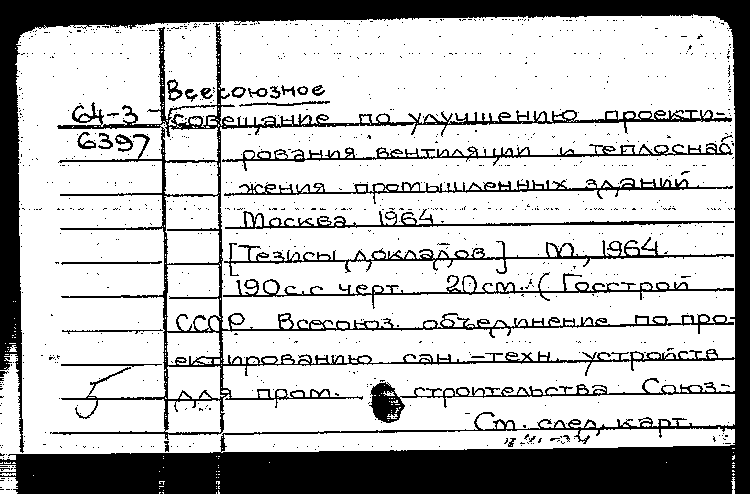 Всесоюзное
64-3 совещание по улучшению проекти-
6397 рования вентиляции и теплоснаб
жения промышленных зданий.
Москва. 1964.
[Тезисы докладов] М., 1964.
190 с. с черт. 20 см. (Госстрой
СССР. Всесоюз. объединение по про-
ектированию сан.-техн. устройств
5 для пром. строительства Союз-
См. след. карт.